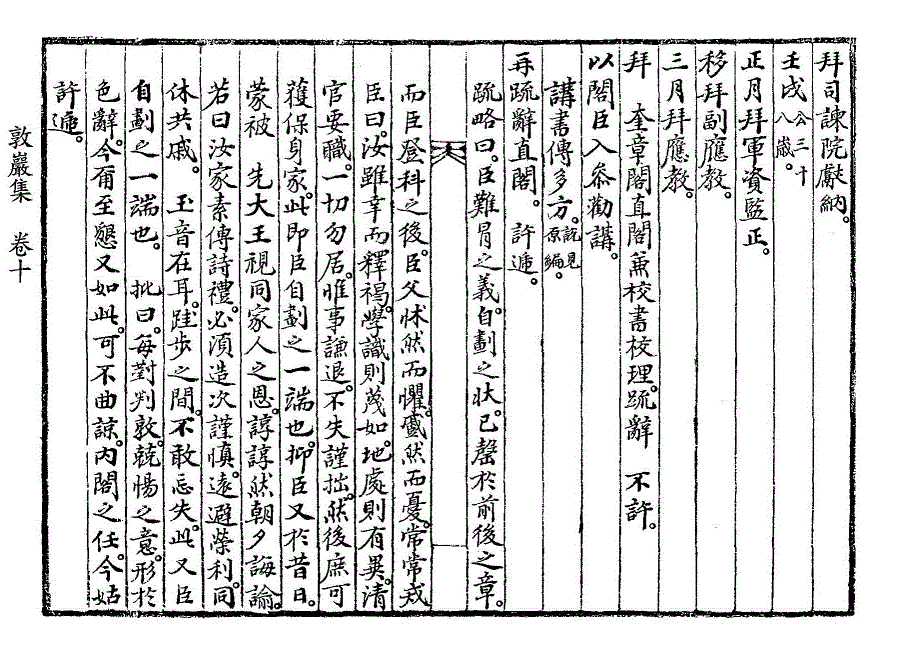 拜司諫院獻納。
壬戌公三十八歲。
正月拜軍資監正。
移拜副應教。
三月拜應教。
拜 奎章閣直閣兼校書校理。疏辭 不許。
以閣臣入參勸講。
講書傳多方。說見原編。
再疏辭直閣。 許遞。
疏略曰。臣難冒之義。自劃之狀。已罄於前後之章。
而臣登科之後。臣父怵然而懼。蹙然而憂。常常戒
臣曰。汝雖幸而釋褐。學識則蔑如。地處則有異。清
官要職。一切勿居。惟事謙退。不失謹拙。然後庶可
獲保身家。此卽臣自劃之一端也。抑臣又於昔日。
蒙被 先大王視同家人之恩。諄諄然朝夕誨諭。
若曰汝家素傳詩禮。必須造次謹慎。遠避榮利。同
休共戚。 玉音在耳。跬步之間。不敢忘失。此又臣
自劃之一端也。 批曰。每對判敦。兢惕之意。形於
色辭。今爾至懇又如此。可不曲諒。內閣之任。今姑
許遞。
敦巖集 卷十